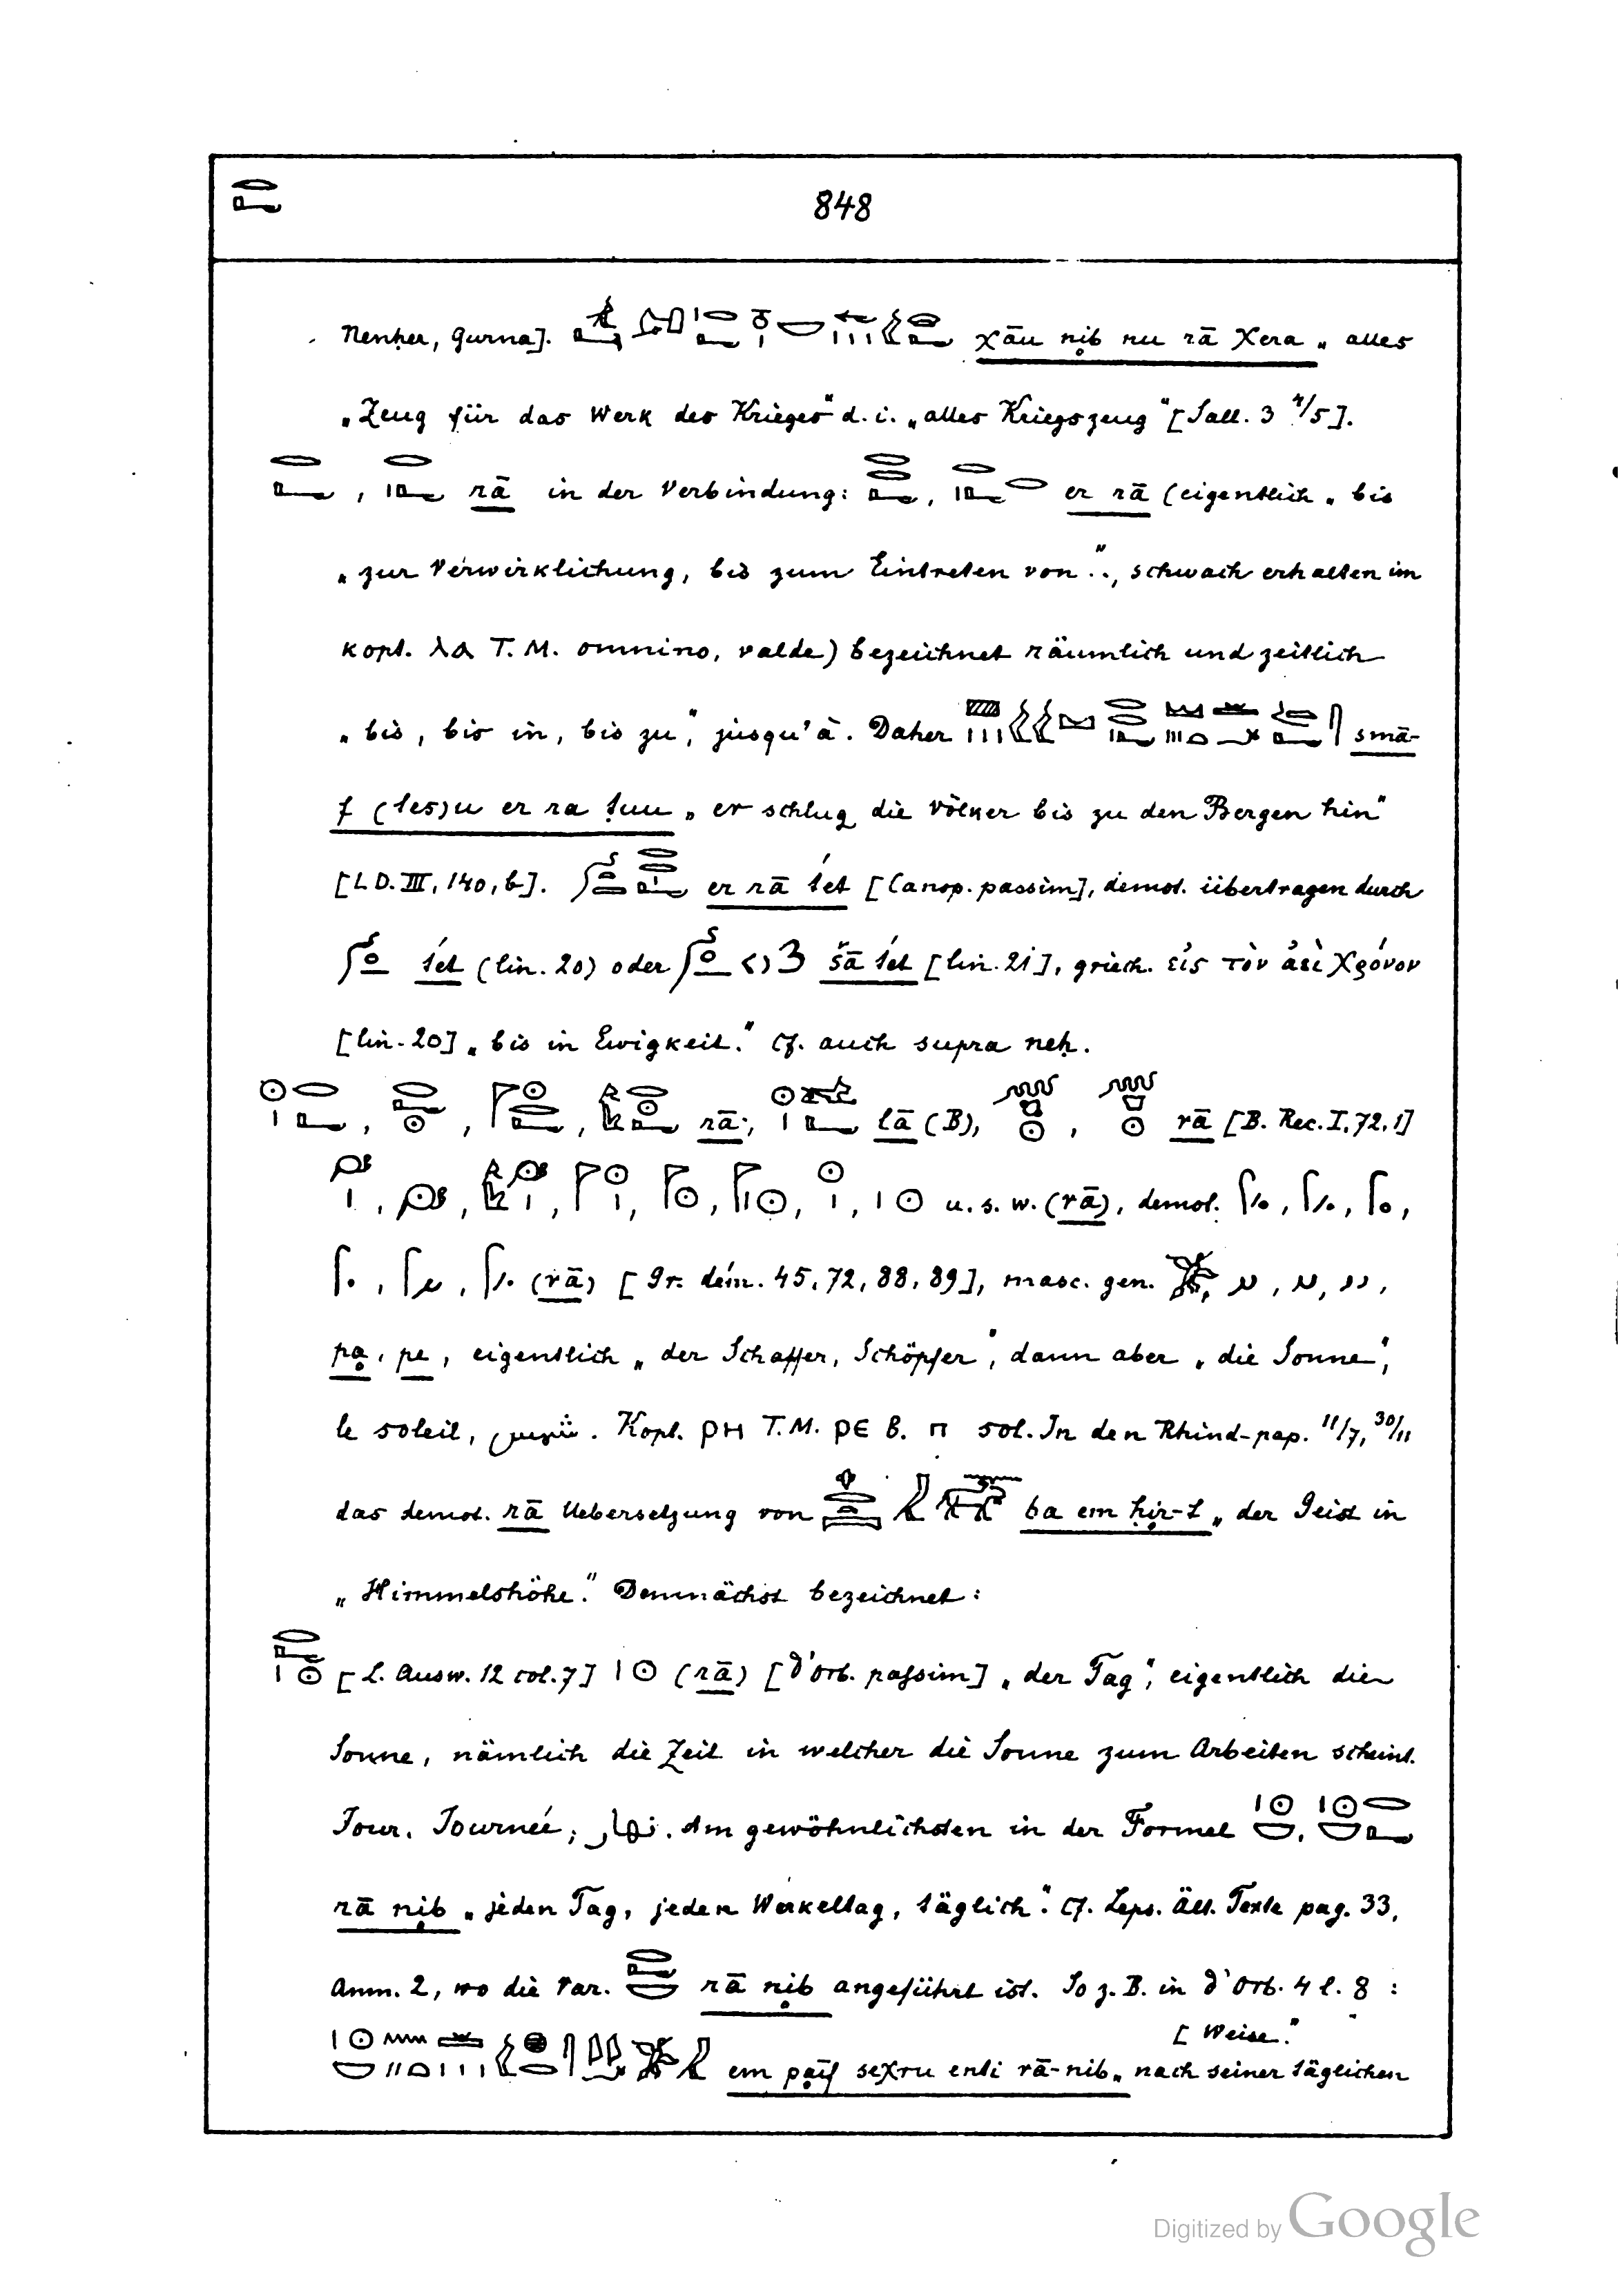 848
Nenḥer, Gurna]. χāu nib nu rā χera „alles
„Zeug für das Werk des Krieges" d. i. „alles Kriegszeug" [Sall. 3 4/5].
, rā in der Verbindung: , er rā (eigentlich „bis
„zur Verwirklichung, bis zum Eintreten von ..", schwach erhalten im
kopt. ⲗⲁ T. M. omnino, valde) bezeichnet räumlich und zeitlich
„bis, bis in, bis zu", jusqu'à. Daher smā-
f (tes)u er ra ṭuu „er schlug die Völker bis zu den Bergen hin"
[LD. III, 140, b]. er rā t́et [Canop. passim], demot. übertragen durch
t́et (lin. 20) oder šā t́et [lin. 21], griech. εἰς τὸν ἀεὶ χρόνον
[lin. 20] „bis in Ewigkeit." Cf. auch supra neḥ.
, , , , rā; lā (B), , rā [B. Rec. I, 72, 1]
, , , , , , , u. s. w. (rā), demot. , , ,
, , (rā) [Gr. dém. 45, 72, 88, 89], masc. gen. , , , ,
pa, pe, eigentlich „der Schaffer, Schöpfer", dann aber „die Sonne",
le soleil, شمس. Kopt. ⲣⲏ T. M. ⲣⲉ B. ⲡ sol. In den Rhind-pap. 11/7, 30/11
das demot. rā Uebersetzung von ba em ḥir-t „der Geist in
„Himmelshöhe." Demnächst bezeichnet:
[L. Ausw. 12 col. 7] (rā) [d'Orb. passim] „der Tag", eigentlich die
Sonne, nämlich die Zeit in welcher die Sonne zum Arbeiten scheint.
Jour, Journée, نهار. Am gewöhnlichsten in der Formel ,
rā nib „jeden Tag, jeden Werkeltag, täglich". Cf. Leps. Ält. Texte pag. 33,
Anm. 2, wo die Var. rā nib angeführt ist. So z. B. in d'Orb. 4 l. 8 :
[Weise."
em paif seχru enti rā-nib „nach seiner täglichen
Digitized by Google